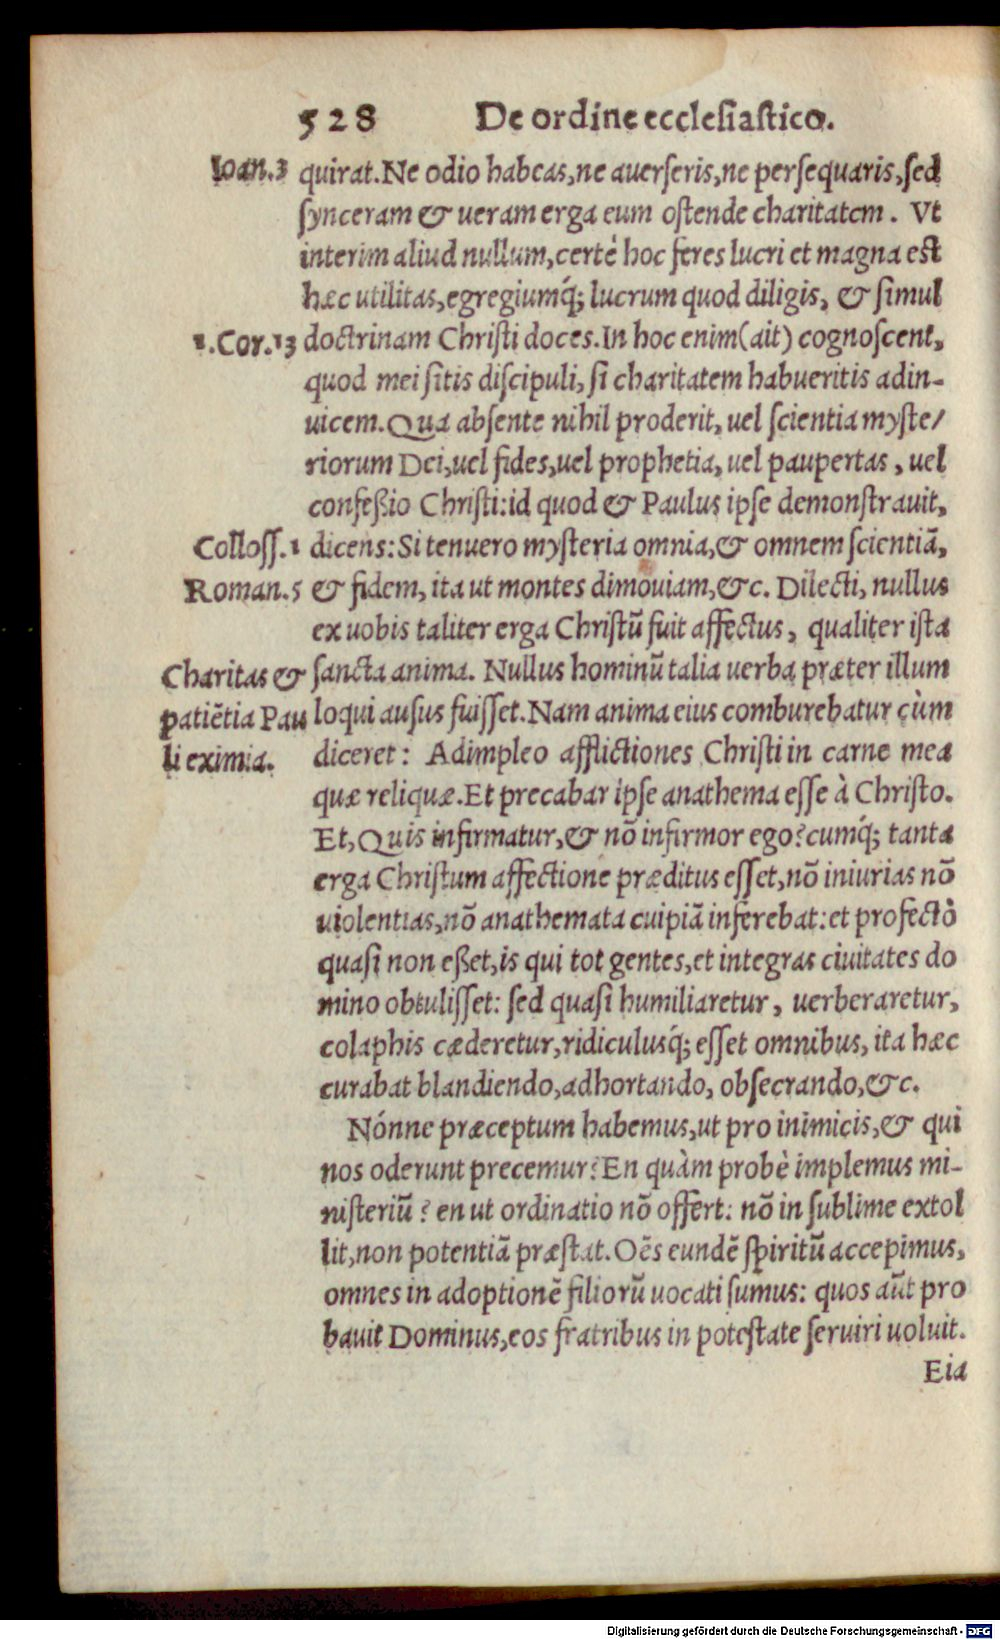 528 De ordine ecclesiastico.
Ioan.3
quirat.Ne odio habeas,ne auerseris,ne persequaris,sed
synceram & ueram erga eum ostende charitatem. Vt
interim aliud nullum,certè hoc feres lucri et magna est
hæc utilitas,egregiumq́; lucrum quod diligis, & simul
1.Cor.13
doctrinam Christi doces.In hoc enim(ait) cognoscent,
quod mei sitis discipuli, si charitatem habueritis adin-
uicem.Qua absente nihil proderit, uel scientia myste/
riorum Dei,uel fides,uel prophetia, uel paupertas, uel
confeßio Christi:id quod & Paulus ipse demonstrauit,
Coloss.1
dicens:Si tenuero mysteria omnia,& omnem scientiã,
Roman.5
& fidem, ita ut montes dimouiam,&c. Dilecti, nullus
ex uobis taliter erga Christũ fuit affectus, qualiter ista
Charitas &
patiẽtia Pau
li eximia.
sancta anima. Nullus hominũ talia uerba præter illum
loqui ausus fuisset.Nam anima eius comburebatur cùm
diceret: Adimpleo afflictiones Christi in carne mea
quæ reliquæ.Et precabar ipse anathema esse à Christo.
Et,Quis infirmatur,& nõ infirmor ego?cumq́; tanta
erga Christum affectione præditus esset,nõ iniurias nõ
uiolentias,nõ anathemata cuipiã inferebat:et profectò
quasi non eßet,is qui tot gentes,et integras ciuitates do
mino obtulisset: sed quasi humiliaretur, uerberaretur,
colaphis cæderetur,ridiculusq́; esset omnibus, ita hæc
curabat blandiendo,adhortando, obsecrando,&c.
Nónne præceptum habemus,ut pro inimicis,& qui
nos oderunt precemur?En quàm probè implemus mi-
nisteriũ? en ut ordinatio nõ offert: nõ in sublime extol
lit,non potentiã præstat.Oẽs eundẽ spiritũ accepimus,
omnes in adoptionẽ filiorũ uocati sumus: quos aũt pro
bauit Dominus,eos fratribus in potestate seruiri uoluit.
Eia
Digitalisierung gefördert durch die Deutsche Forschungsgemeinschaft - DFG